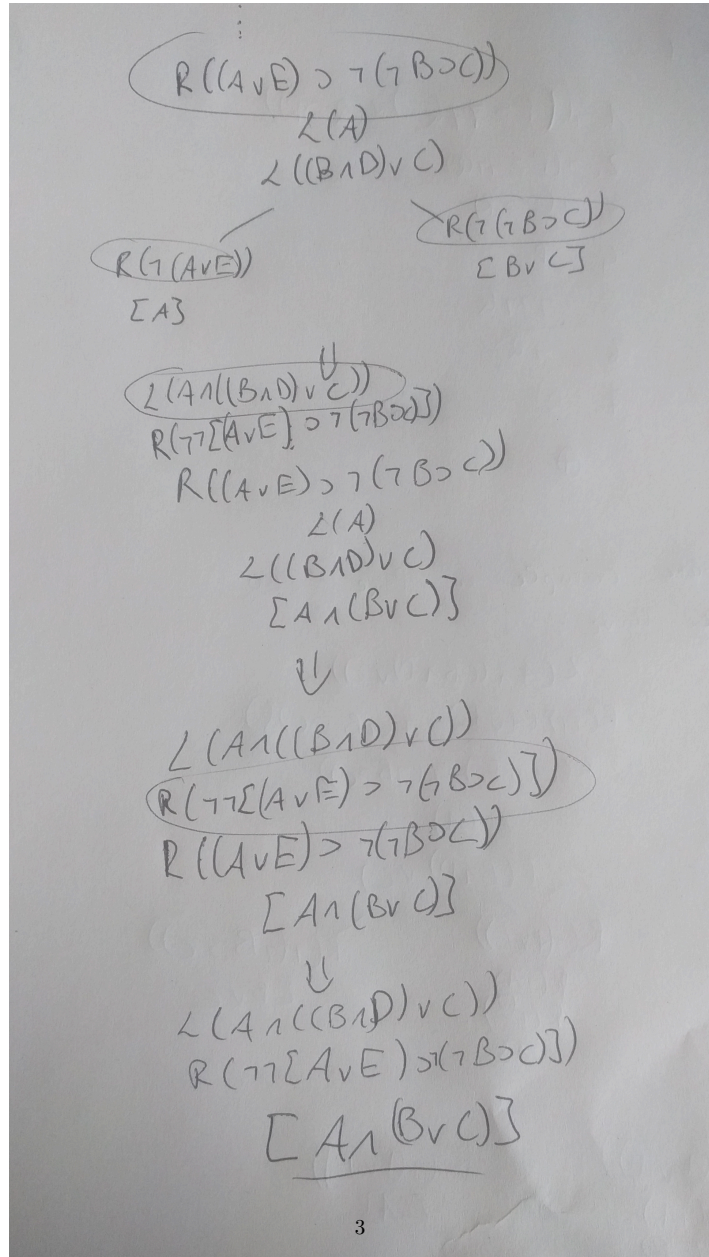 R((A∨E) ⊃ ¬(¬B⊃C))
L(A)
L((B∧D)∨C)
R(¬(A∨E))
[A]
R(¬(¬B⊃C))
[B∨C]
⇓
L(A∧((B∧D)∨C))
R(¬¬[(A∨E) ⊃ ¬(¬B⊃C)])
R((A∨E) ⊃ ¬(¬B⊃C))
L(A)
L((B∧D)∨C)
[A∧(B∨C)]
⇓
L(A∧((B∧D)∨C))
R(¬¬[(A∨E) ⊃ ¬(¬B⊃C)])
R((A∨E) ⊃ ¬(¬B⊃C))
[A∧(B∨C)]
⇓
L(A∧((B∧D)∨C))
R(¬¬[A∨E) ⊃¬(¬B⊃C)])
[A∧(B∨C)]
3